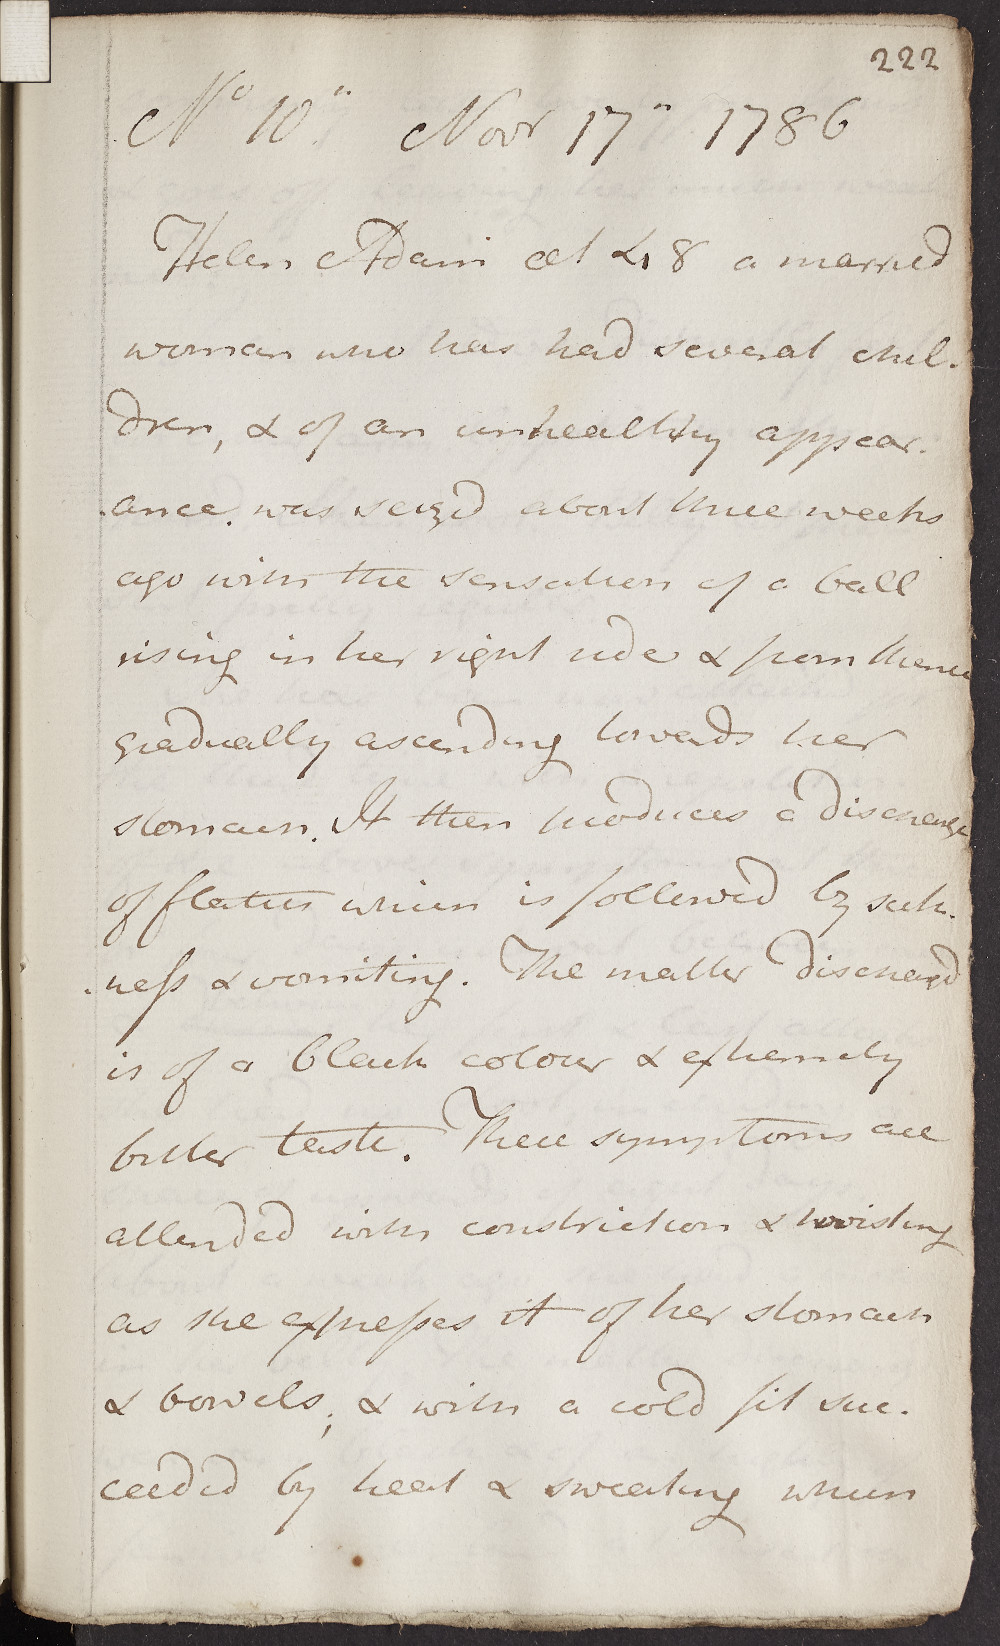 222
No 10" Novr 17" 1786
Helen Adam æt 48 a married
woman who has had several chil-
dren, & of an unhealthy appear-
ance. was seized about three weeks
ago with the sensation of a ball
rising in her right side & from thence
gradually ascending towards her
stomach. It then produces a discharge
of flatus which is followed by sick-
ness & vomiting. The matter discharged
is of a black colour & extremely
bitter taste. These symptoms are
attended with constriction & twisting
as she expresses it of her stomach
& bowels; & with a cold fit suc-
ceeded by heat & sweating which